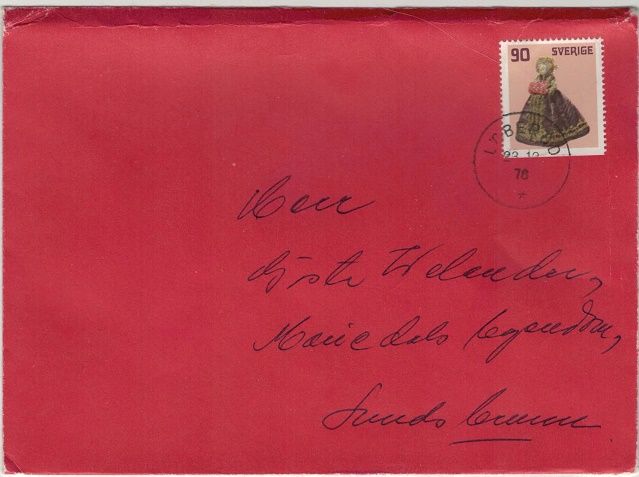 90 SVERIGE
LÖBERÖD
23 12
78
Herr
Gösta Welander,
Mariedals Egendom,
Sunds bruun